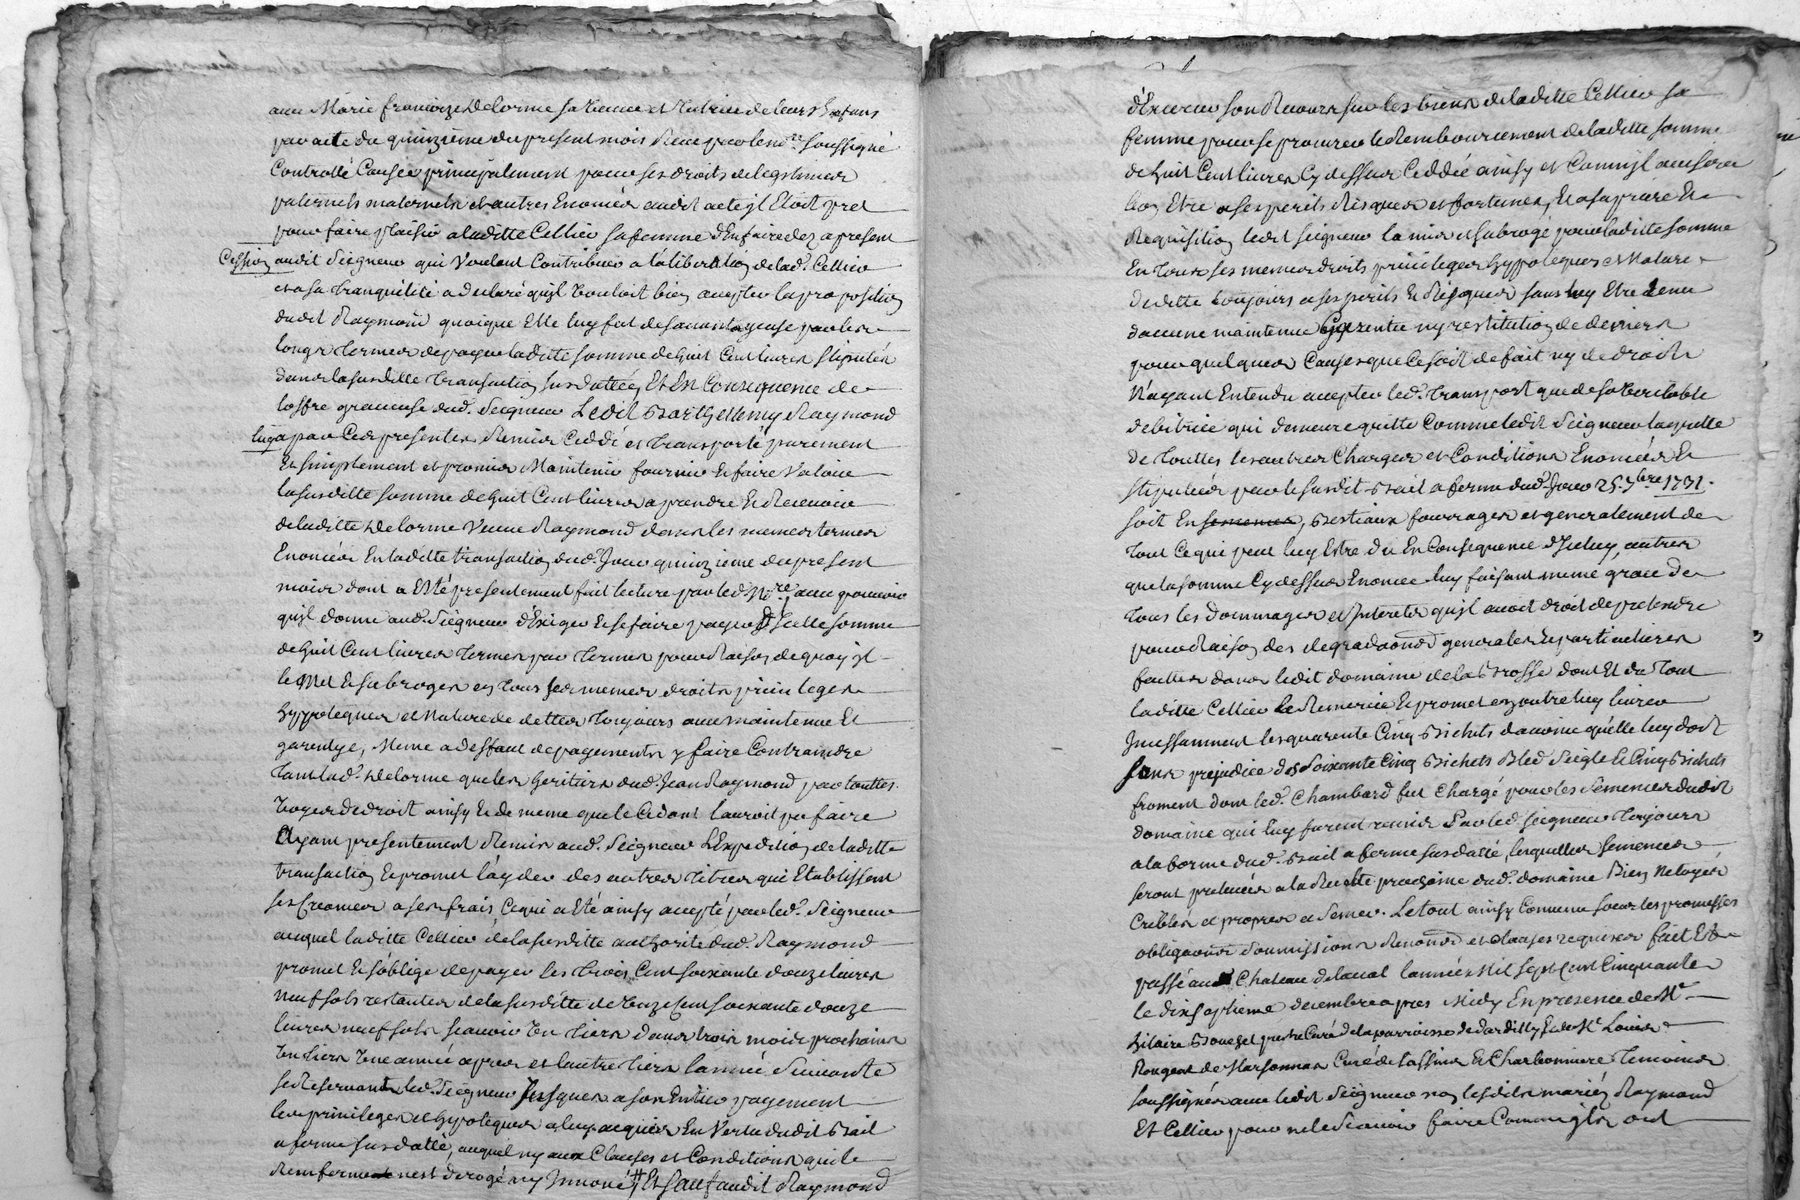 avec Marie françoize Delorme sa Veuve et Tutrice de leurs Enfans
par acte du quinzieme du present mois Receu par le no.re soussigné
Controllé Causée principalement pour ses droits de legitimes
paternels maternels et autres Enoncés audit acte jl Etoit pret
pour faire plaisir a laditte Cellier sa femme d'En faire dez a present
Cession audit Seigneur qui Voulant Contribuer a la liberation de lad.e Cellier
et a sa tranquilité a declaré qujl Vouloit bien accepter la proposition
dudit Raymond quoique Elle luy fut desavantageuse par les
longs termes de payer laditte somme de huit Cent livres stipulés
dans la susditte transaction susdattée, Et En Consequence de
loffre gracieuse dud. Seigneur Ledit Barthellemy Raymond
luy a par Ces presentes Remis Ceddé et transporté purement
Et simplement et promis Maintenir fournir Et faire Valoir
la susditte somme de huit Cent livres a prendre Et Recevoir
de laditte Delorme Veuve Raymond dans les memes termes
Enoncés En laditte transaction dud. Jour quinzieme du present
mois dont a Eté presentement fait lecture par led. No.re avec pouvoir
qujl donne aud. Seigneur d'Exiger Et se faire payer Jcelle somme
de huit Cent livres termes par termes pour Raison de quoy jl
le Met Et subroge en tous ses memes droits privileges
hyppoteques et Nature de dettes toujours avec maintenue Et
garentye, Meme a deffaut de payements y faire Contraindre
tant lad.e Delorme que les heritiers dud. Jean Raymond par touttes
Voyes de droit ainsy Et de meme que le Cedant l'auroit pu faire
Ayant presentement Remis aud. Seigneur L'Expedition de laditte
transaction Et promet l'ayder des autres titres qui Etablissent
ses Creances a ses frais Ce qui a Eté ainsy accepté par led. Seigneur
auquel laditte Cellier de la susditte authorité dud. Raymond
promet Et s'oblige de payer les trois Cent soixante douze livres
neuf sols restantes de la susditte de Onze Cent soixante douze
livres neuf sols scavoir Un tiers dans trois mois prochains
Un tiers Une année apres et l'autre tiers l'année Suivante
se Reservant led. Seigneur Jusques a son Entier payement
les privileges et hypoteques a luy acquis En Vertu dudit Bail
a ferme susdatté, auquel ny aux Clauses et Conditions qu'il
Renferme nest derogé ny Jnnové # Et sauf audit Raymond
d'Exercer son Recours sur les biens de laditte Cellier sa
femme pour se procurer le Remboursement de laditte somme
de huit Cent livres Cy dessus Ceddée ainsy et Comme jl avisera
bon Etre a ses perils Risques et fortunes, Et a sa priere Et
Requisition ledit Seigneur la mis et subrogé pour laditte somme
En tous ses memes droits privileges hyppoteques et Nature
de dette toujours a ses perils Et Risques sans luy Etre tenu
daucune maintenue Garentie ny restitution de deniers
pour quelques Causes que Ce soit de fait ny de droit
N'ayant Entendu accepter led. transport que de sa Veritable
debitrice qui demeure quitte Comme ledit Seigneur la quitte
de touttes les autres Charges et Conditions Enoncées Et
stipulées par le susdit Bail a ferme dud. Jour 25. 7bre 1731.
soit En semences, Bestiaux fourrages et generalement de
tout Ce qui peut luy Estre du En Consequence d'Jceluy, autres
que la somme Cy dessus Enoncée luy faisant meme grace de
tous les dommages et Jnterets qujl avoit droit de pretendre
pour Raison des degradaons generales Et particulieres
faittes dans ledit domaine de la Brosse dont Et du tout
laditte Cellier le Remercie Et promet en outre luy livrer
Jncessamment les quarente Cinq Bichets davoine qu'elle luy doit
sans prejudice des Soixante Cinq Bichets Bled Seigle Et Cinq Bichets
froment dont led. Chambard fut Chargé pour les Semences dudit
domaine qui luy furent remis Par led. Seigneur toujours
a la forme dud. Bail a ferme susdatté, lesquelles semences
seront prelevées a la Recolte prochaine dud. domaine Bien Netoyés
Criblés et propres a Semer. Le tout ainsy Convenu sous les promesses
obligaons Soumissions Renonons et Clauses requises fait Et
passé au Chateau de laval l'année Mil sept Cent Cinquante
le dix septieme decembre apres Midy En presence de Mr.
hilaire Bouezet pretre Curé de la parroisse de dardilly Et de Mr. Louis
Rougeat de Marsonnas Curé de tassins Et Charbonniere temoins
soussignés avec ledit Seigneur non lesdits mariés Raymond
Et Cellier pour ne le Scavoir faire Comme jls ont